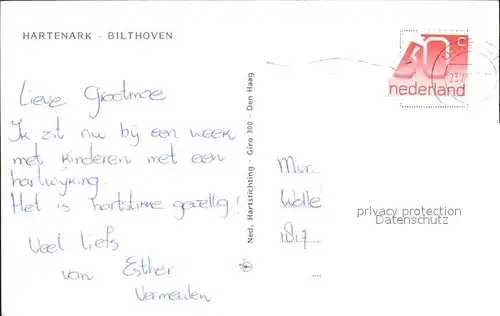 HARTENARK - BILTHOVEN
Lieve Grootmoe
Ik zit nu bij een week
met kinderen met een
hartwijking
Het is hartstikke gezellig!
Veel liefs
van Esther
Vermeulen
Ned. Hartstichting - Giro 300 - Den Haag
60 c
nederland
Mur.
Wolle
1817
privacy protection
Datenschutz